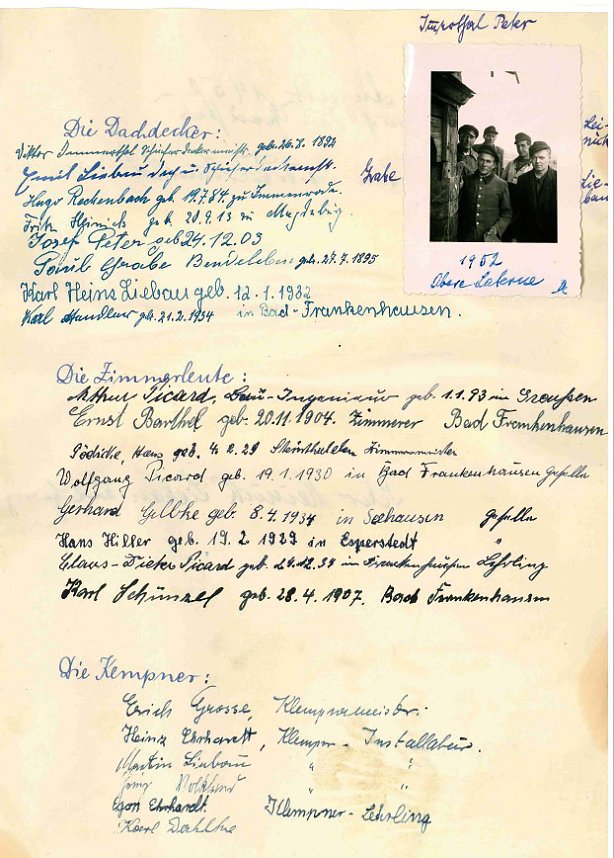 Immothal Peter
Die Dachdecker:
Viktor Immenthal Schieferdeckermeistr. geb. 26.3. 1892
Emil Liebau Dach u. Schieferdeckermstr.
Hugo Reckenbach geb. 19.7.84. zu Immenrode.
Fritz Heinich geb. 20.9.13 in Magdebg.
Josef Peter geb 24.12.03
Paul Grabe Bendeleben geb. 27.7.1895
Karl Heinz Liebau geb. 12.1.1932
Karl geb. 21.2.1934 in Bad-Frankenhausen.
Grabe
Hei-
nich
Lie-
bau
1952
Obere
Die Zimmerleute:
Arthur Picard, Bau-Ingenieur geb. 1.1.93 in Greußen
Ernst Barthel geb. 20.11.1904. Zimmerer Bad Frankenhausen
Hans geb. 4.2.29 Zimmermeister
Wolfgang Picard geb. 19.1.1930 in Bad Frankenhausen Geselle
Gerhard Gelbke geb. 8.4.1934 in Seehausen Geselle
Hans Hiller geb. 19.2.1929 in Esperstedt "
Claus-Dieter Picard geb. 24.12.34 in Frankenhausen Lehrling
Karl Schünzel geb. 28.4.1907. Bad Frankenhausen
Die Kempner:
Erich Grosse, Klempnermeister.
Heinz Ehrhardt, Klemper-Installatur.
Martin Liebau " "
" "
Egon Ehrhardt. Klempner-Lehrling
Karl Dahlke